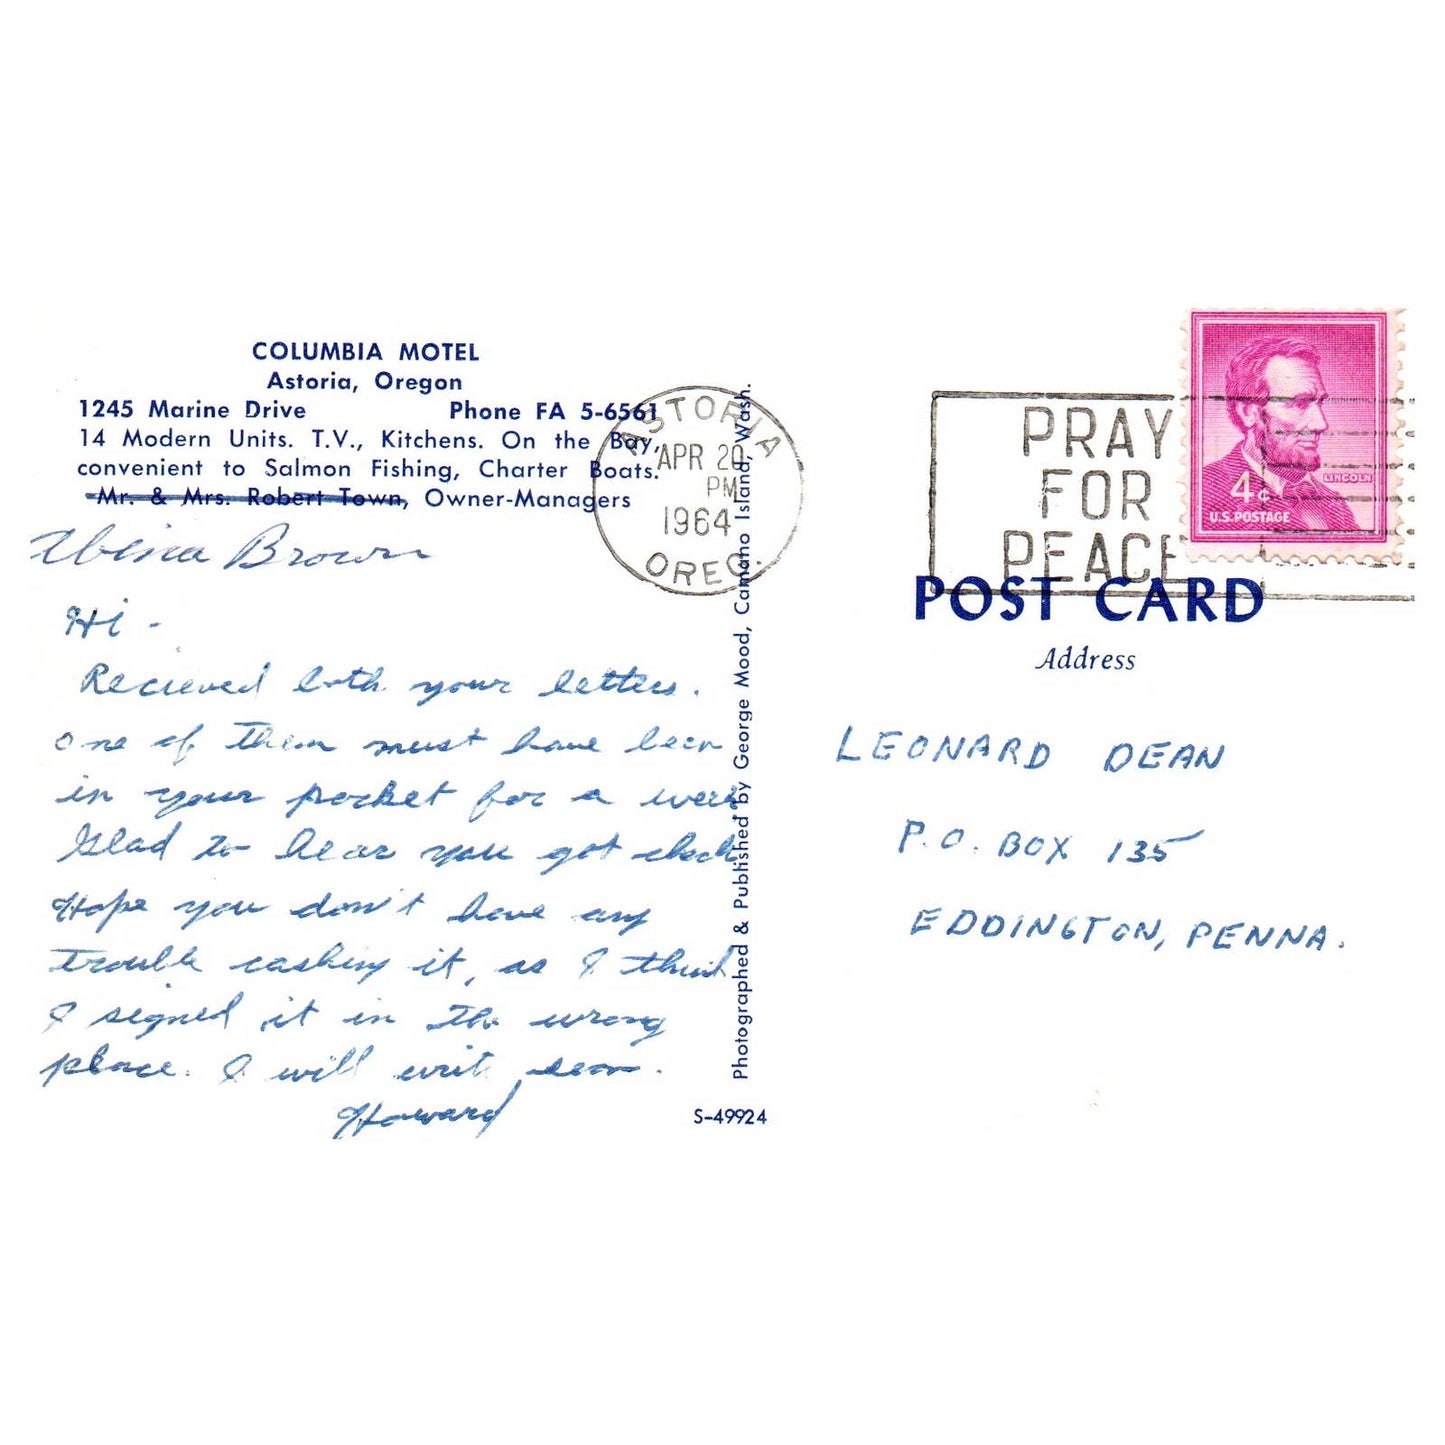 COLUMBIA MOTEL
Astoria, Oregon
1245 Marine Drive Phone FA 5-6561
14 Modern Units. T.V., Kitchens. On the Bay,
convenient to Salmon Fishing, Charter Boats.
Mr. & Mrs. Robert Town, Owner-Managers
Brown
Hi -
Recieved both your letters.
One of them must have been
in your pocket for a week.
Glad to hear you got check
Hope you don't have any
trouble cashing it, as I think
I signed it in the wrong
place. I will write soon.
Howard
S-49924
Photographed & Published by George Mood, Camano Island, Wash.
ASTORIA
APR 20
PM
1964
OREG.
PRAY
FOR
PEACE
4¢
LINCOLN
U.S. POSTAGE
POST CARD
Address
LEONARD DEAN
P.O. BOX 135
EDDINGTON, PENNA.